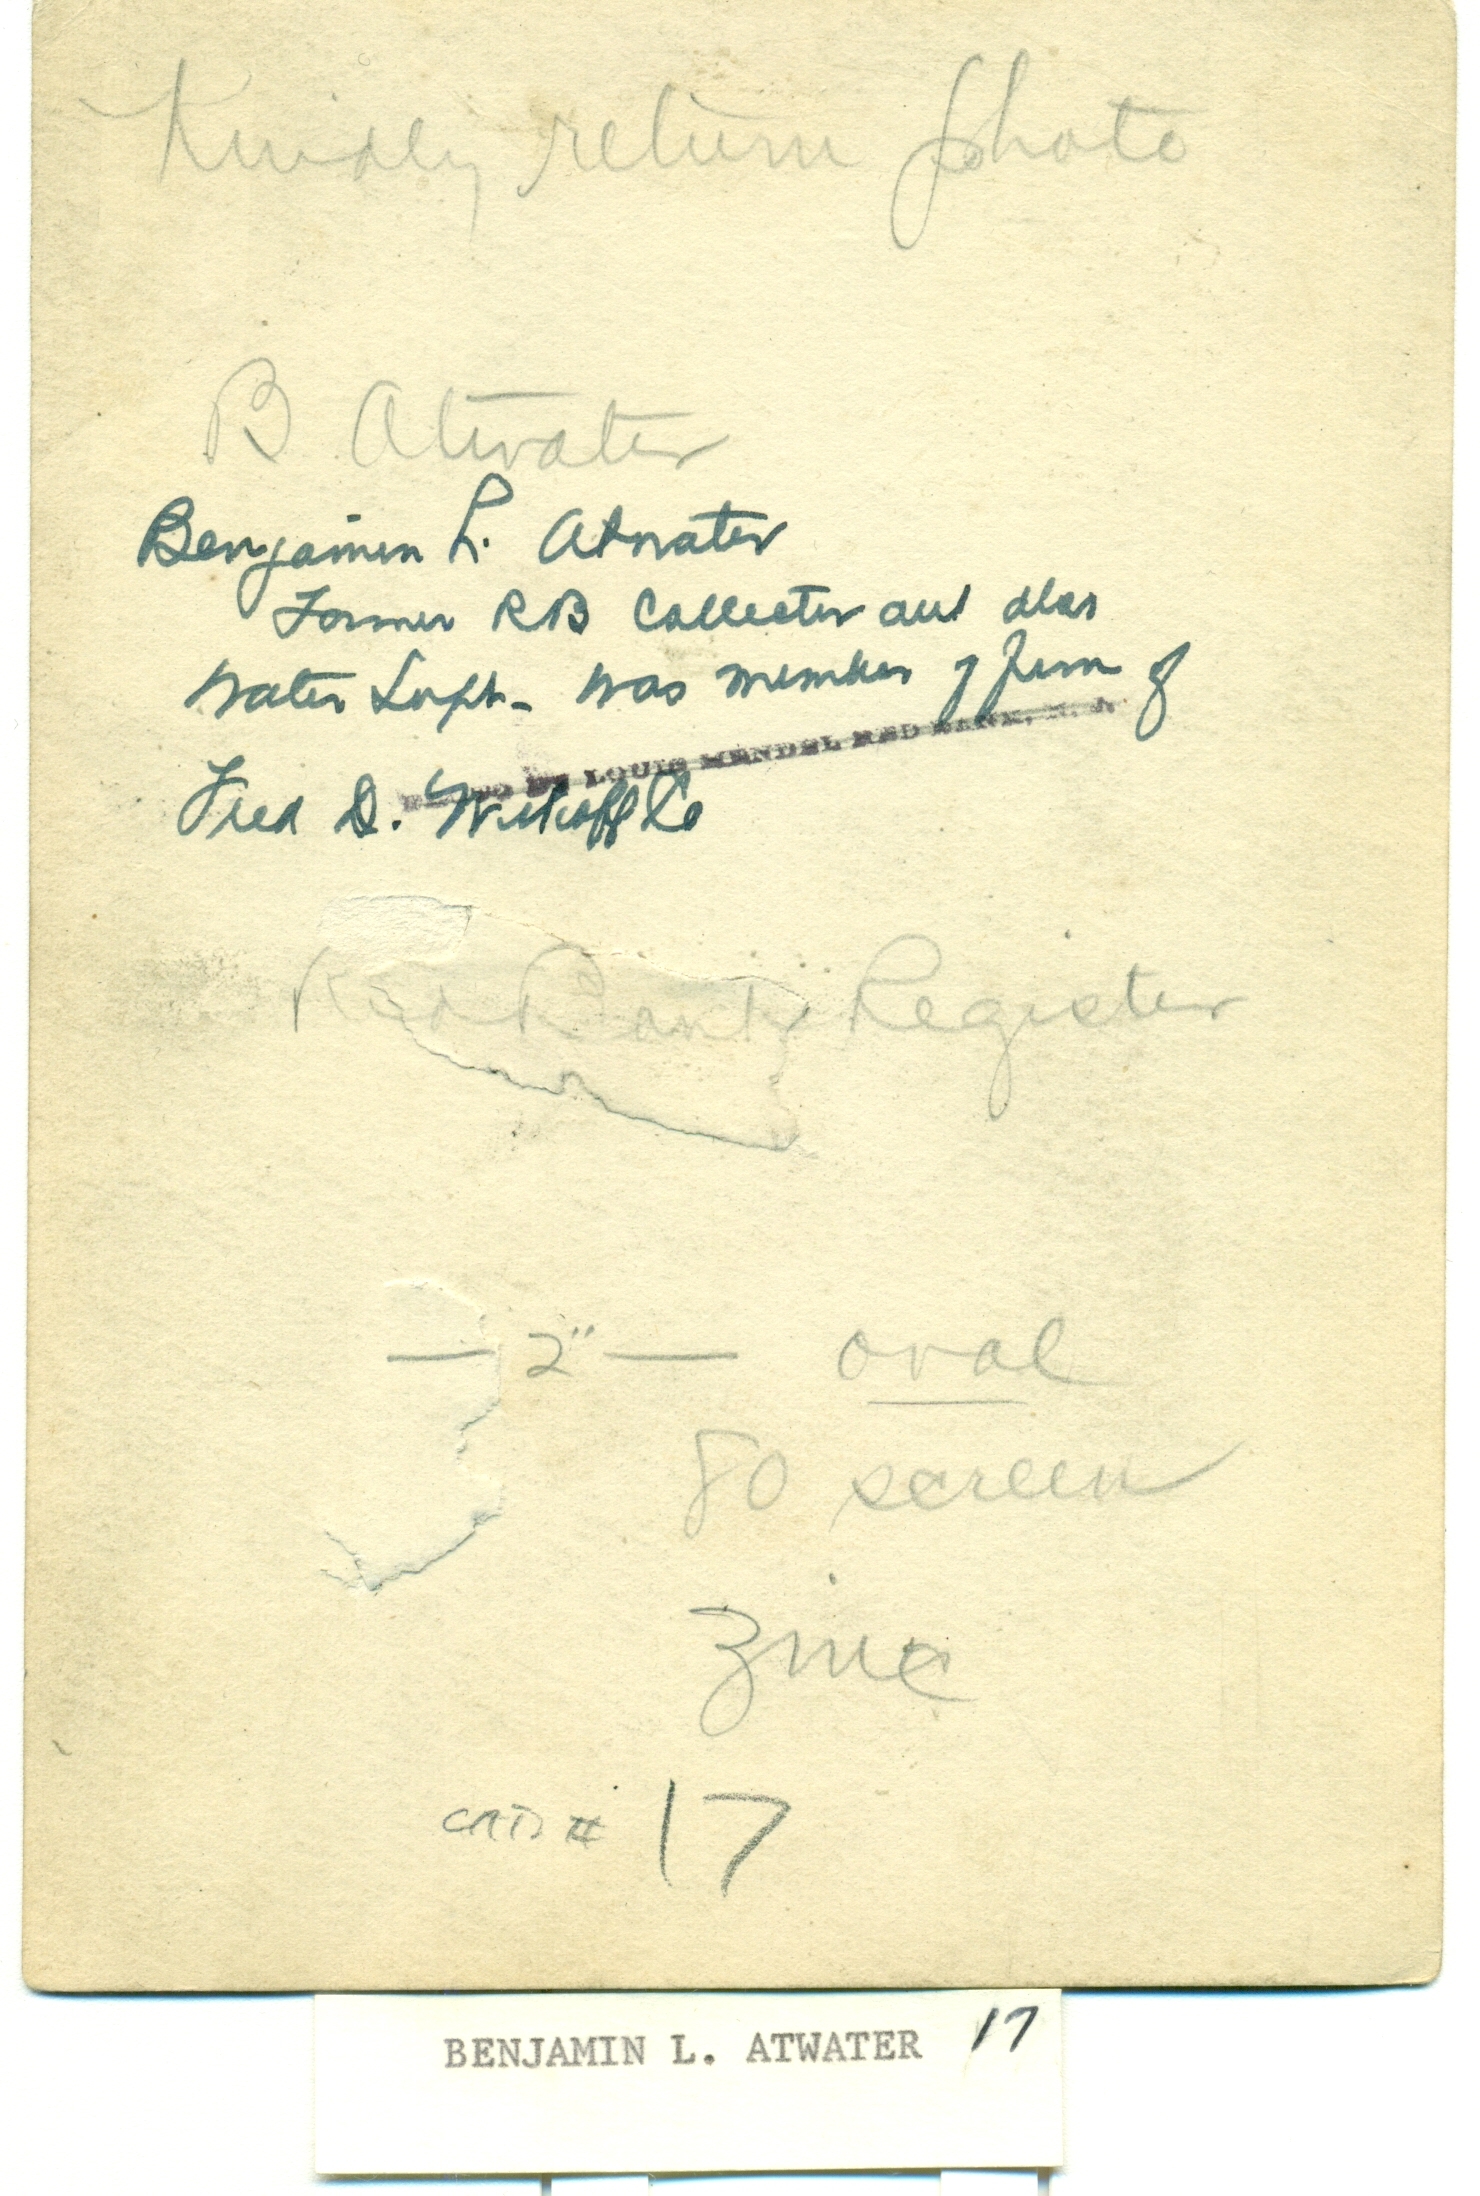 Kindly return photo
B Atwater
Benjamin L. Atwater
Former RB Collector and also
Water Supt- was member of firm of
LOUIS MENDEL RED BANK, N. J.
Fred D. Wikoff Co
Red Bank Register
— 2" — oval
80 screen
zinc
CARD # 17
BENJAMIN L. ATWATER 17